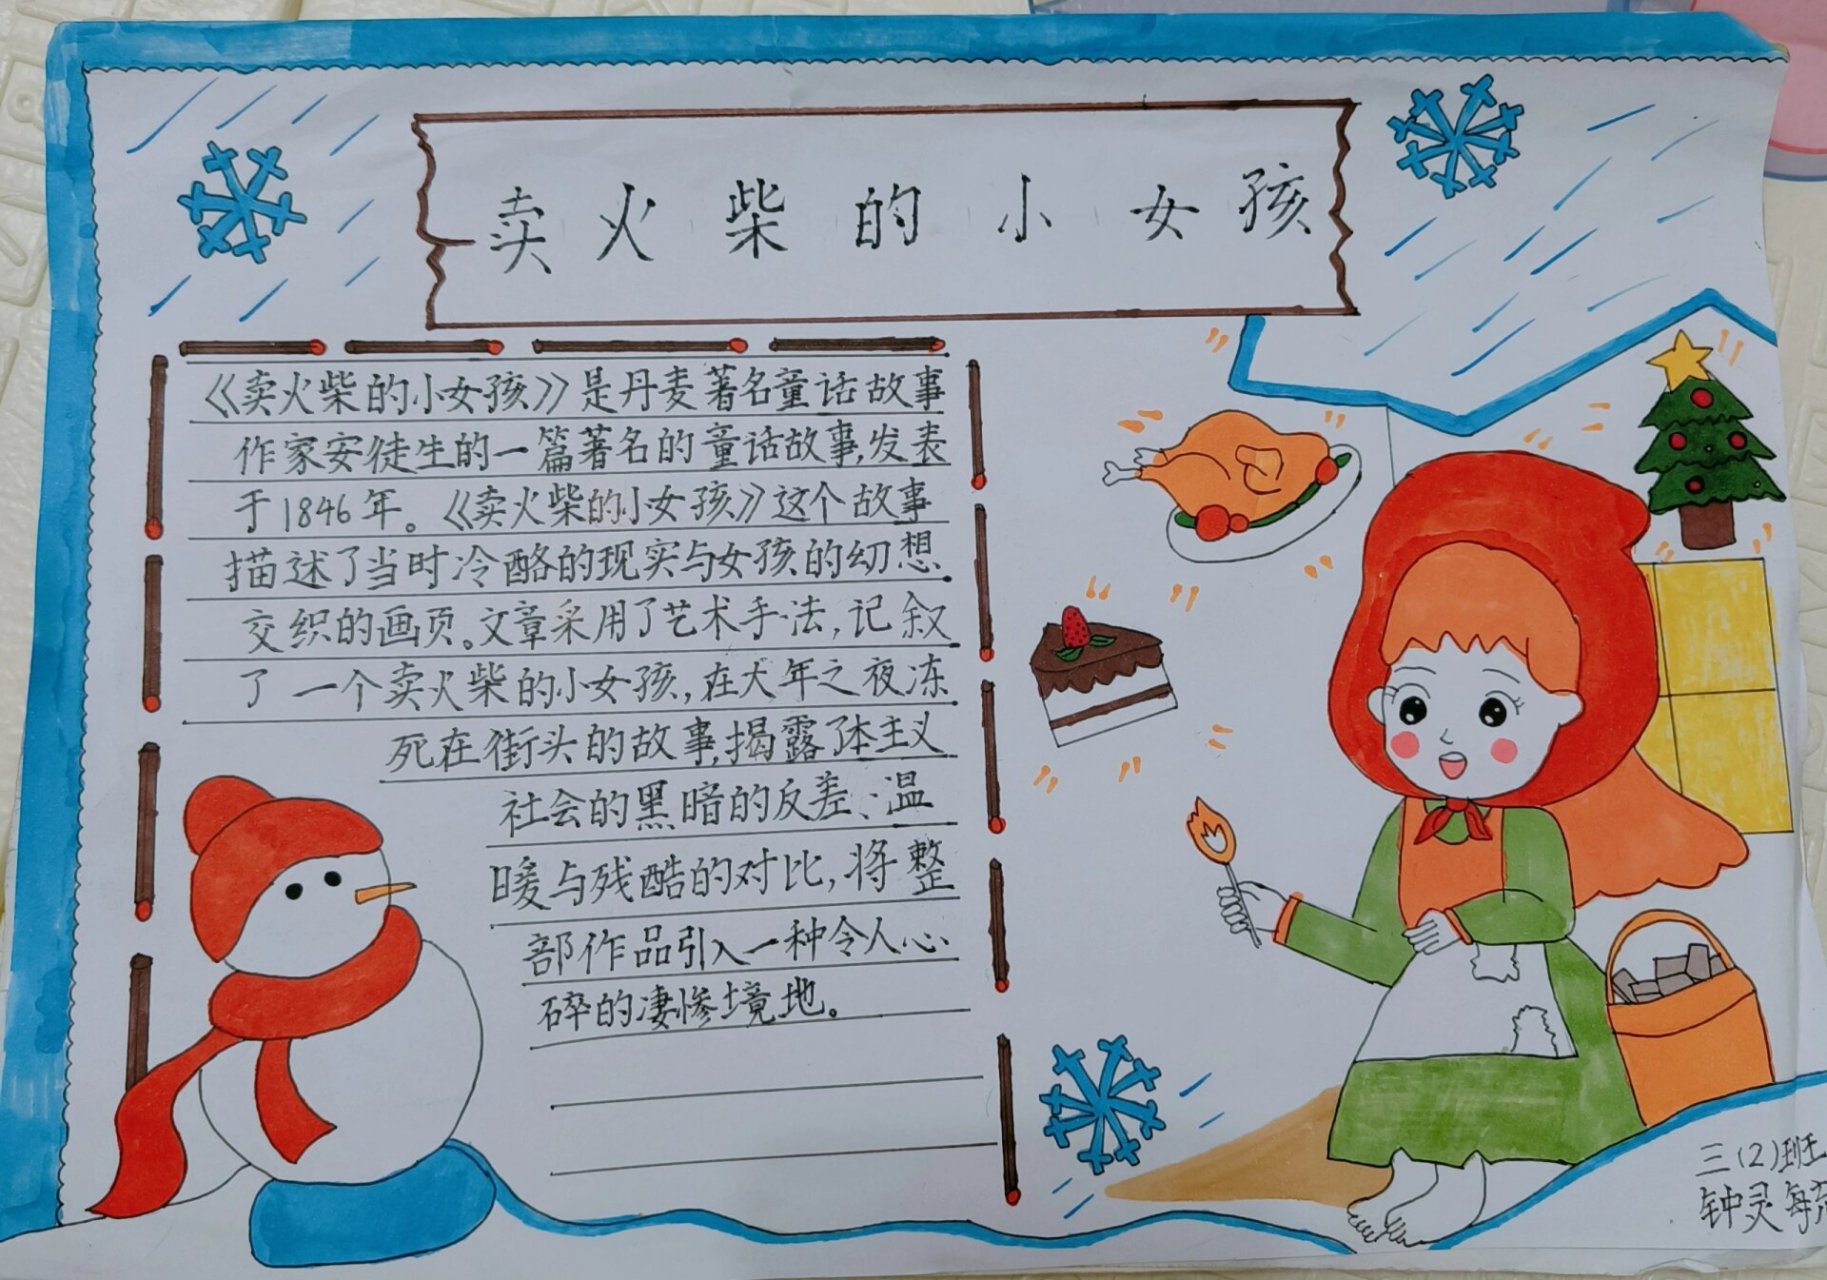 卖火柴的小女孩
《卖火柴的小女孩》是丹麦著名童话故事
作家安徒生的一篇著名的童话故事,发表
于1846年。《卖火柴的小女孩》这个故事
描述了当时冷酷的现实与女孩的幻想
交织的画页。文章采用了艺术手法,记叙
了一个卖火柴的小女孩,在大年之夜冻
死在街头的故事,揭露了本主义
社会的黑暗的反差、温
暖与残酷的对比,将整
部作品引入一种令人心
碎的凄惨境地。
三(2)班
钟灵